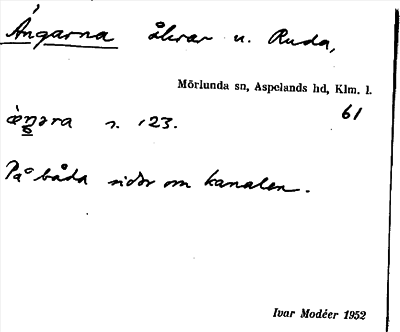 Ängarna åkrar u. Ruda,
Mörlunda sn, Aspelands hd, Klm. l.
61
s. 123.
På båda sidor om kanalen.
Ivar Modéer 1952